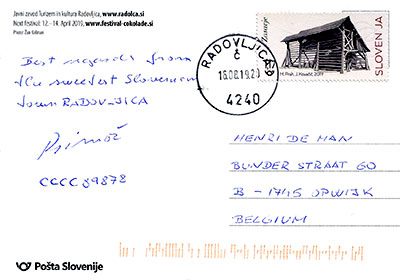 Javni zavod Turizem in kultura Radovljica, www.radolca.si
Next festival: 12. - 14. April 2019, www.festival-cokolade.si
Best regards from
the sweetest Slovenian
town RADOVLJICA
Primož
CGCC 89878
RADOVLJICA
č
18.08.19.20
4240
SLOVENIJA
HENRI DE MAN
BUNDER STRAAT 60
B - 1745 OPWIJK
BELGIUM
Pošta Slovenije